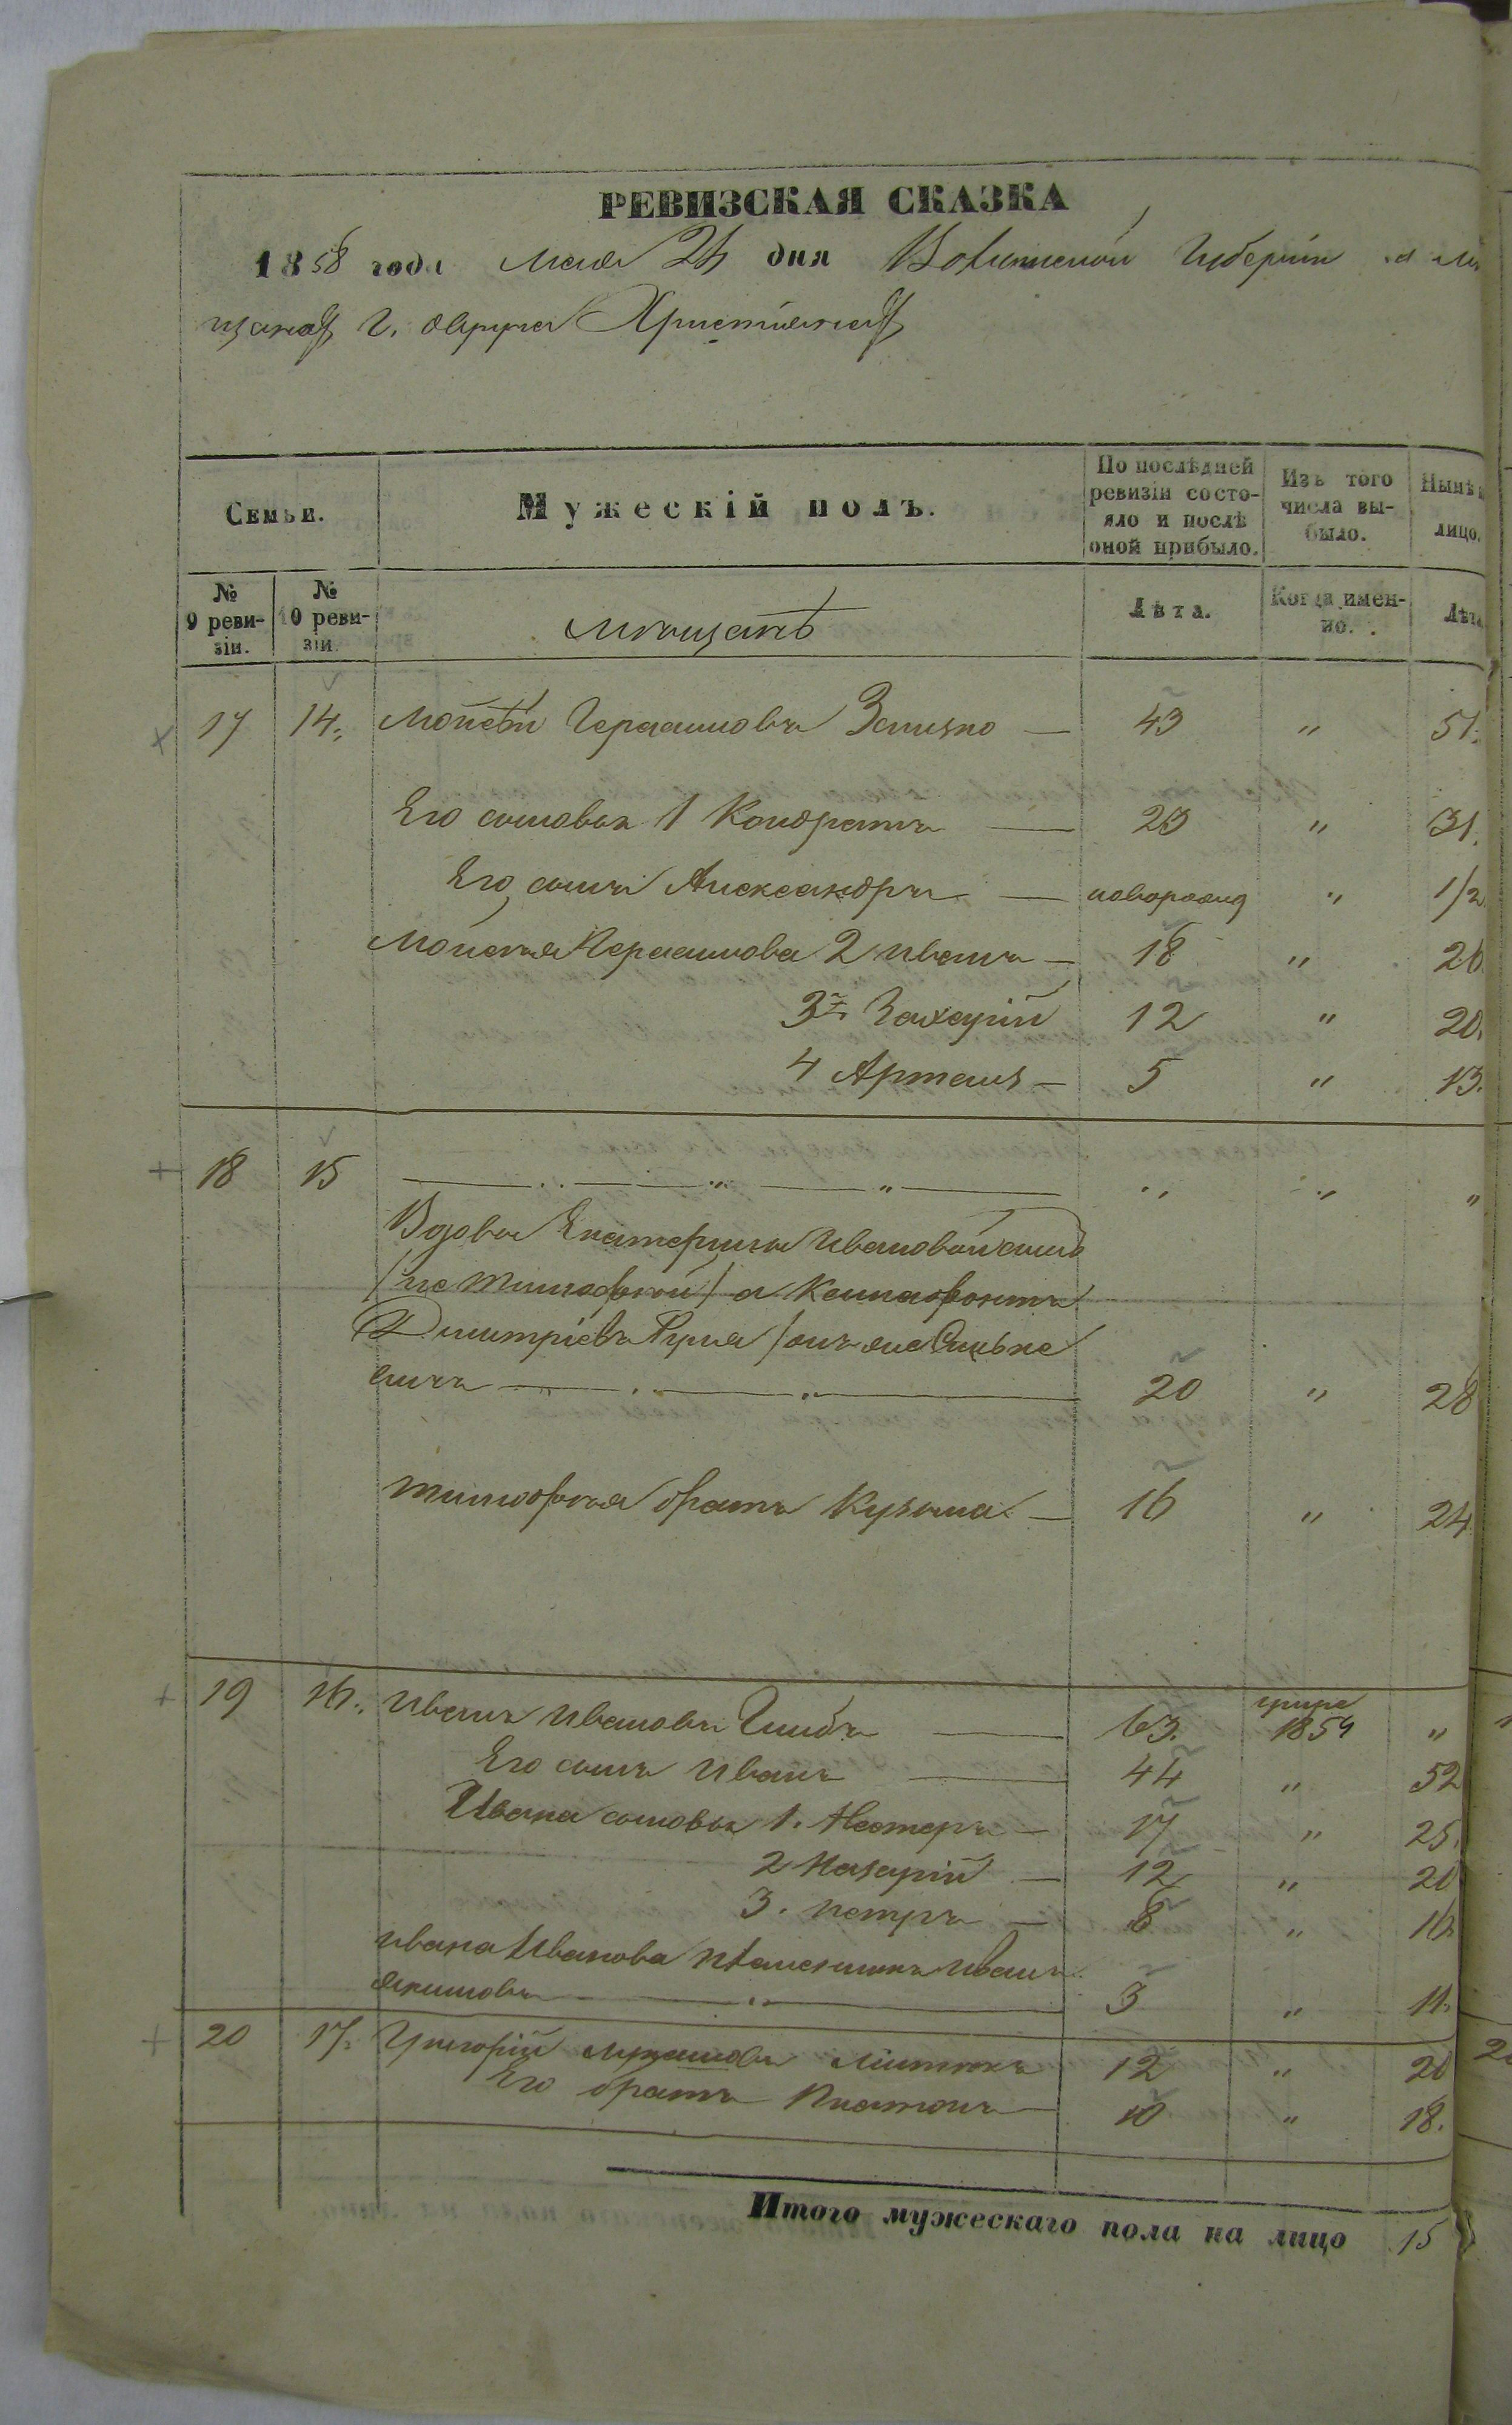 РЕВИЗСКАЯ СКАЗКА
1858 года мая 26 дня Волынской Губерніи о мѣ
щанахъ г. Овруча Христіанахъ
Семьи.
Мужескій полъ.
По послѣдней ревизіи состо-
яло и послѣ
оной прибыло.
Изъ того
числа вы-
было.
Нынѣ
лицо.
№
9 реви-
зіи.
№
10 реви-
зіи.
мѣщанѣ
Лѣта.
Когда имен-
но.
Лѣта
17 14. Мойсей Герасимовъ — 43 " 51.
Его сыновья 1 Кондратъ — 23 " 31.
Его сынъ Александръ — новорожд " 1/2
Мойсея Герасимова 2 Иванъ — 18 " 26
3й Захарій 12 " 20.
4 Артемъ — 5 " 13.
18 15 — " — " — " " "
Вдовы Екатерины Ивановой сынъ
/не Тимофѣй/ а Ксенофонтъ
Дмитріевъ /онъ же
20 " 28
Тимофѣя братъ Кузьма — 16 " 24
19 16. Иванъ Ивановъ — 63. 1854 "
Его сынъ Иванъ — 44 " 52
Ивана сыновья 1. Нестеръ — 17 " 25.
2 Назарій — 12 " 20
3. Петръ — 8 " 16
Ивана Иванова племянникъ Иванъ
Якимовъ — " — 3 " 11.
20 17. Григорій 12 " 20
Его братъ Платонъ — 10 " 18.
Итого мужескаго пола на лицо 15